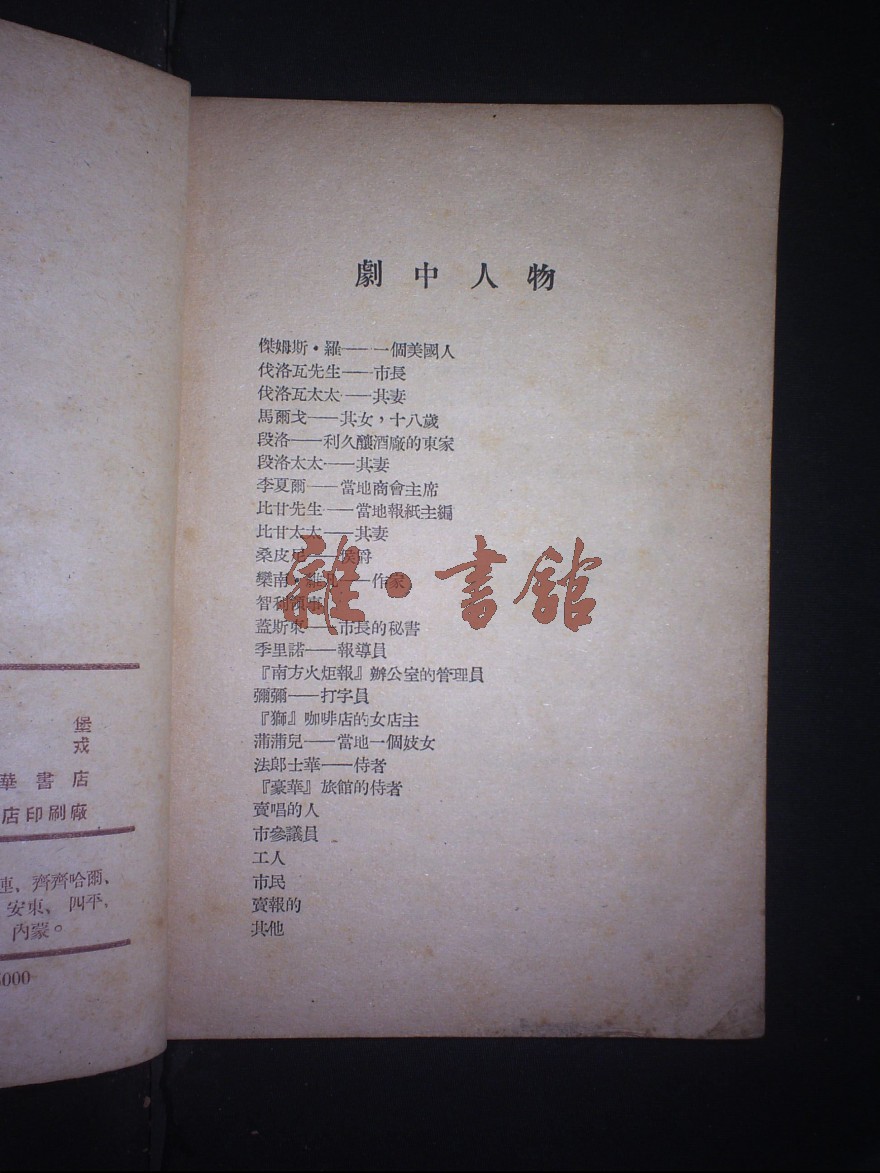 劇中人物
傑姆斯・羅——一個美國人
伐洛瓦先生——市長
伐洛瓦太太——其妻
馬爾戈——其女，十八歲
段洛——利久釀酒廠的東家
段洛太太——其妻
李夏爾——當地商會主席
比甘先生——當地報紙主編
比甘太太——其妻
桑皮尼——侯爵
欒南・維——作家
智利領事
蓋斯東——市長的秘書
季里諾——報導員
『南方火炬報』辦公室的管理員
彌彌——打字員
『獅』咖啡店的女店主
蒲蒲兒——當地一個妓女
法郎士華——侍者
『豪華』旅館的侍者
賣唱的人
市參議員
工人
市民
賣報的
其他
雜・書館
堡
戎
華書店
店印刷廠
連、齊齊哈爾、
安東、四平、
內蒙。
000